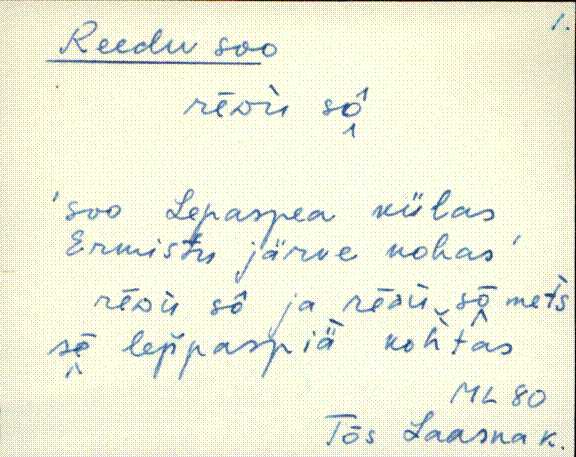 1.
Reedu soo
rēᴅù sô
'soo Lepaspea külas
Ermistu järve kohas'
rēᴅù sô ja rēᴅù sō mets
sō lep̆paspiä kohtas
ML 80
Tõs Laasna k.